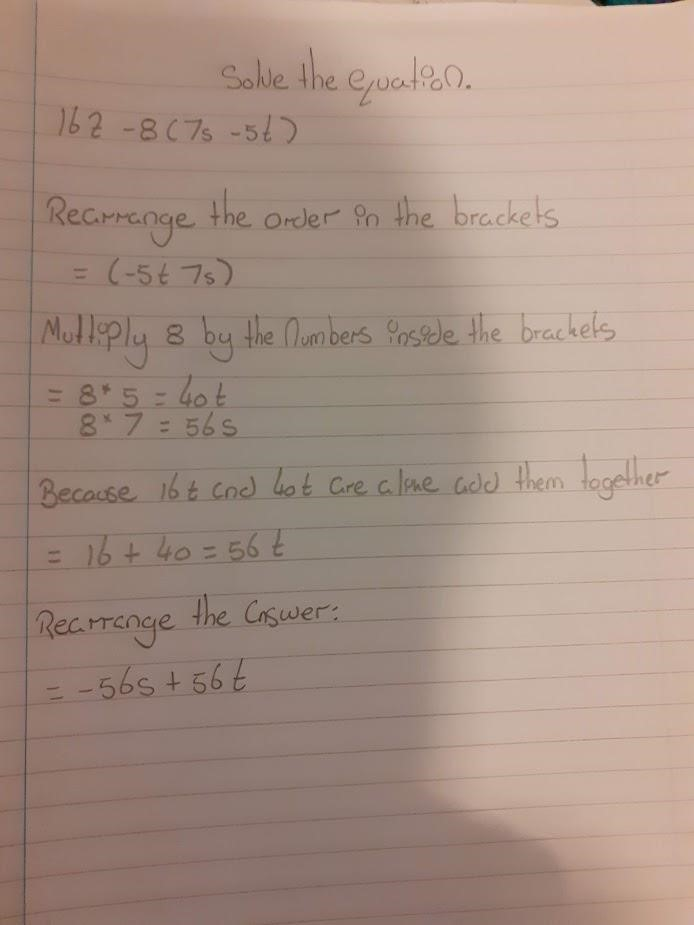 Solve the equation.
16z - 8(7s - 5t)
Rearrange the order in the brackets
= (-5t 7s)
Multiply 8 by the numbers inside the brackets
= 8 * 5 = 40t
8 * 7 = 56s
Because 16t and 40t are alone add them together
= 16 + 40 = 56t
Rearrange the answer:
= -56s + 56t